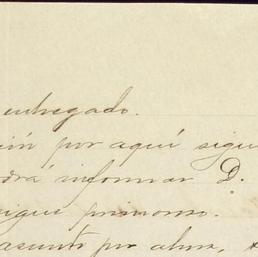 entregado.
por aquí sigue
informar D.
sigue primoroso.
asunto por ahora,